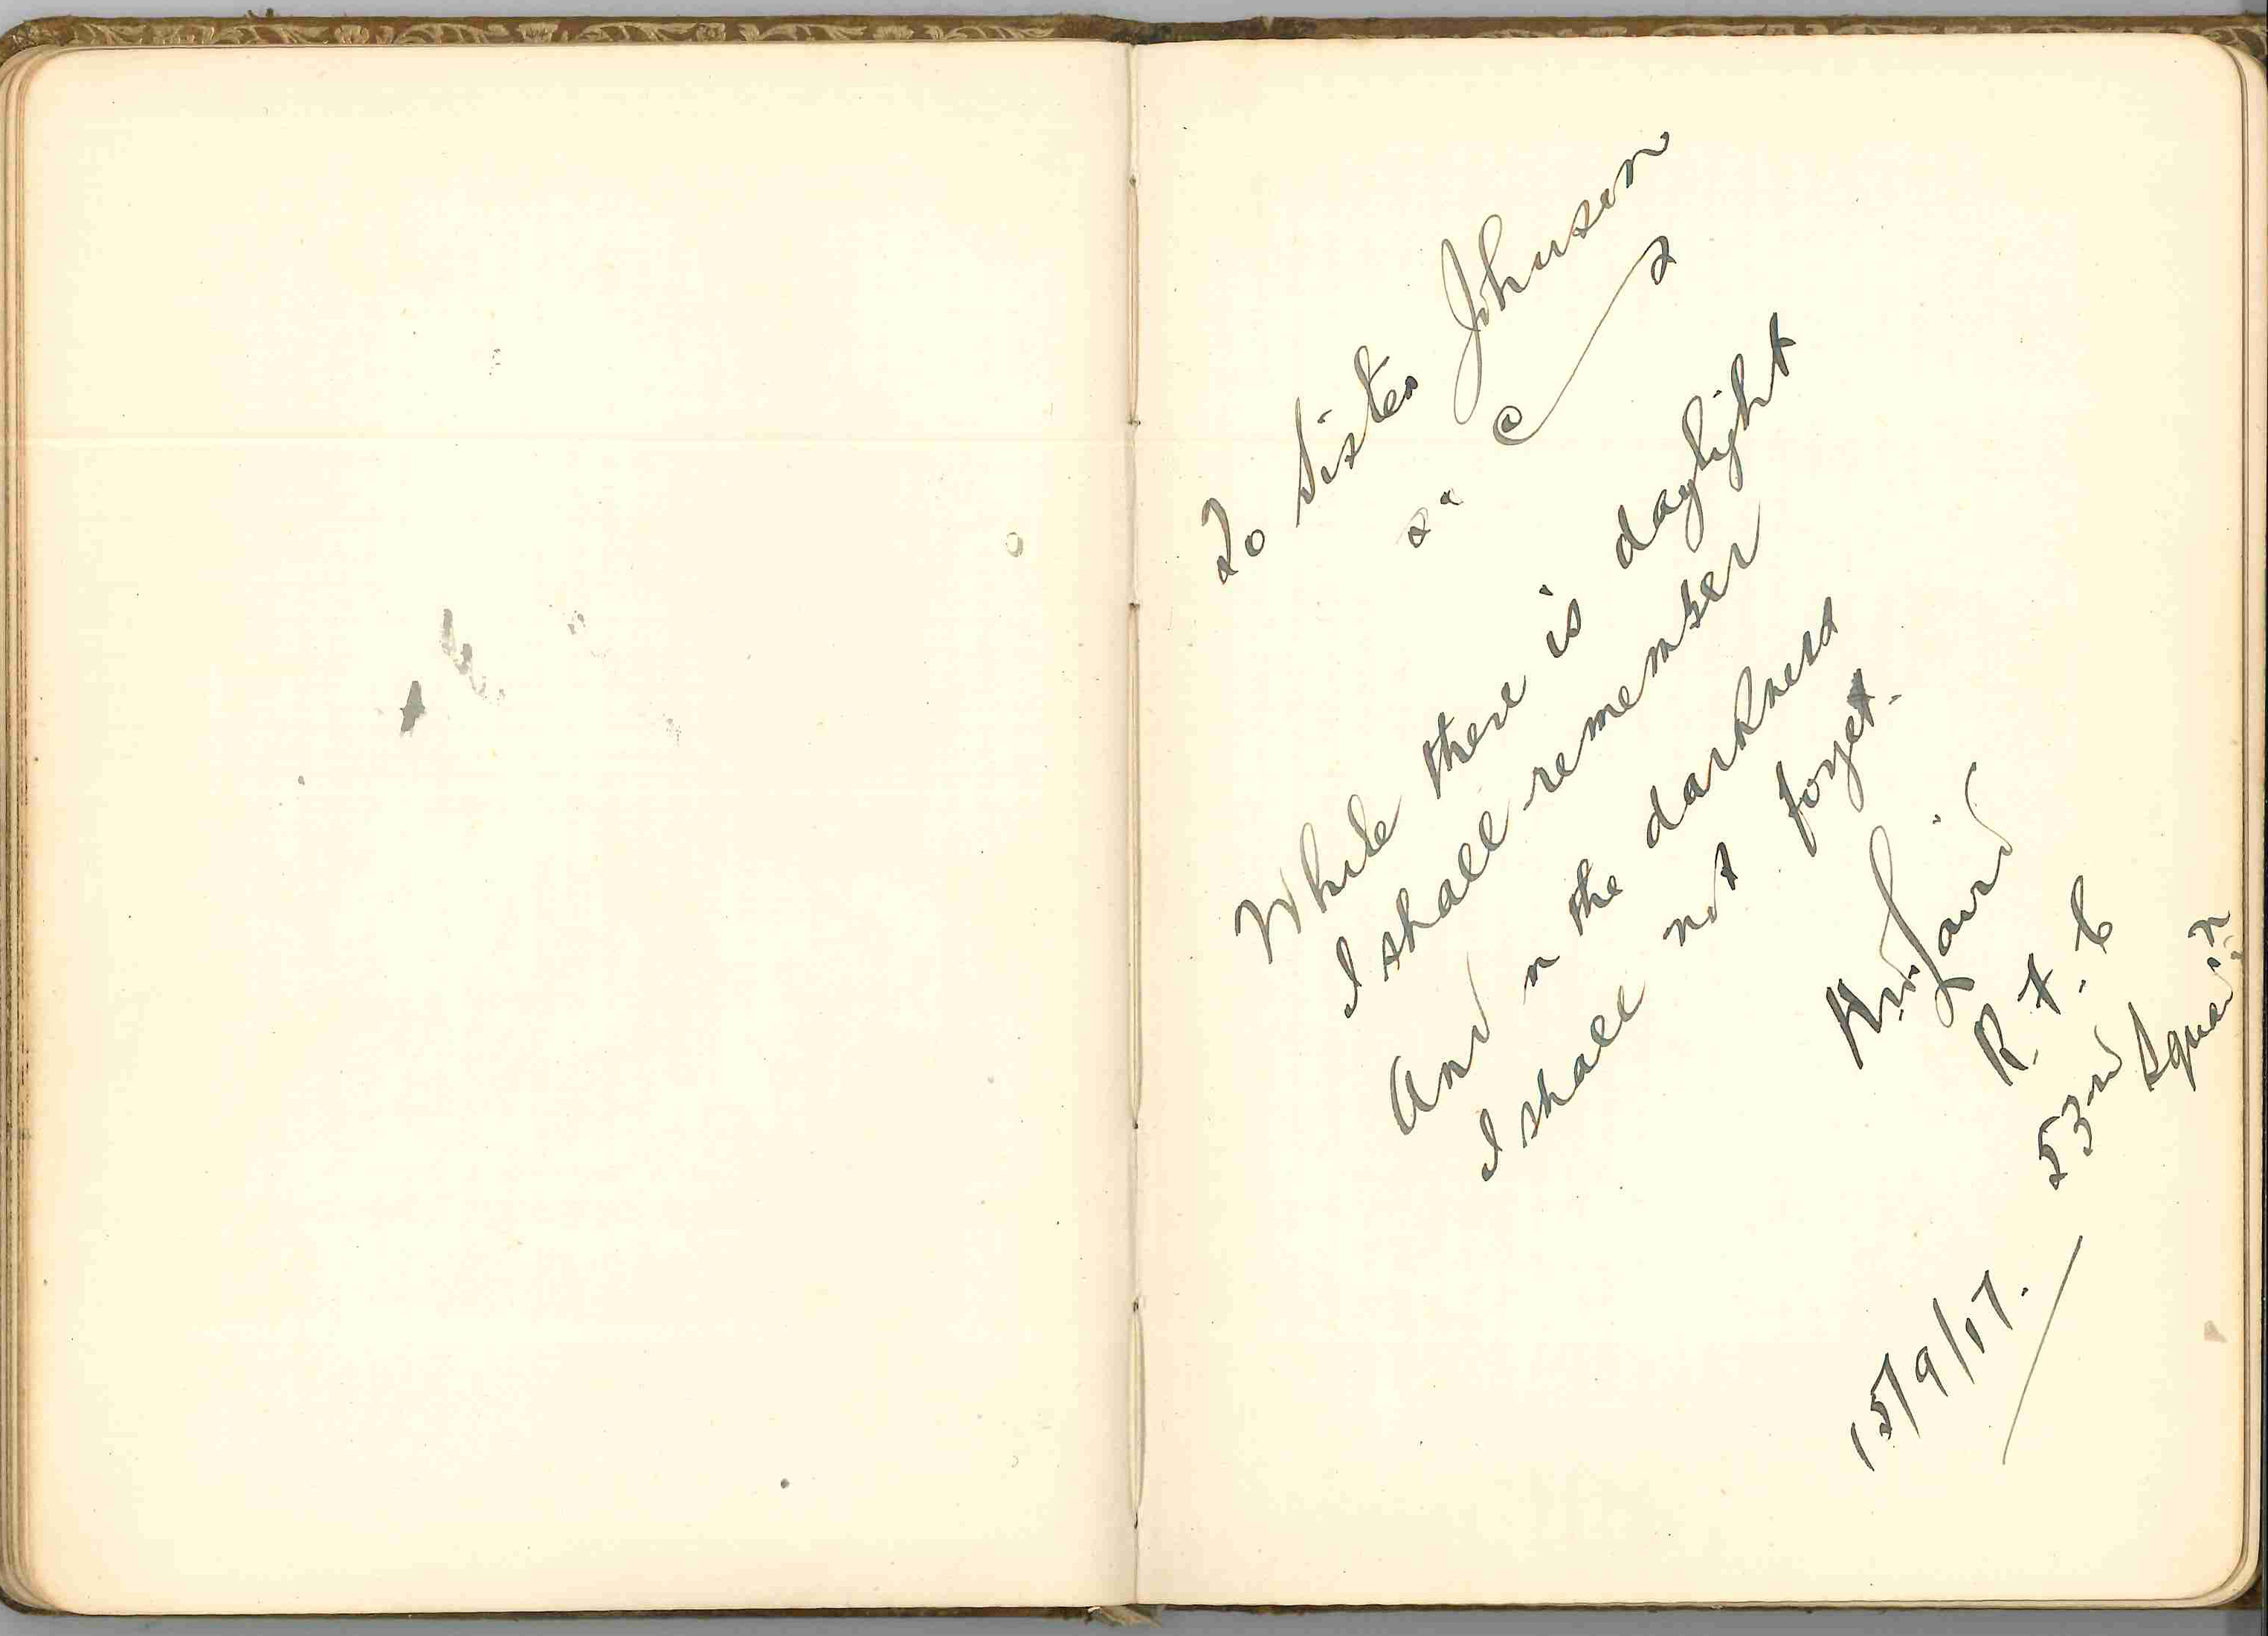 To Sister Johnson
While there is daylight
I shall remember
And in the darkness
I shall not forget.
Laird
R. F. C
53rd Squad'n
15/9/17.